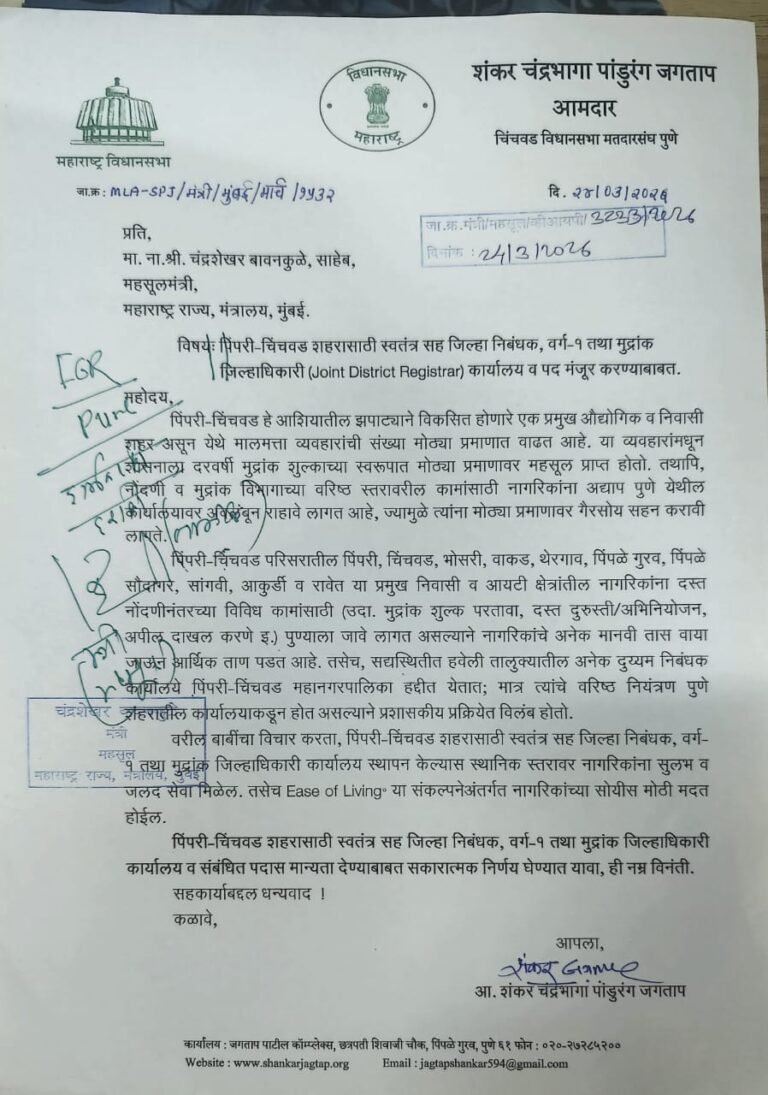 शंकर चंद्रभागा पांडुरंग जगताप
आमदार
चिंचवड विधानसभा मतदारसंघ पुणे
विधानसभा
महाराष्ट्र
महाराष्ट्र विधानसभा
जा.क्र: MLA-SPJ/मंत्री/मुंबई/मार्च/१५३२
दि. २४/०३/२०२६
जा.क्र.मंत्री/महसूल/व्हीआयपी/ 3223/2026
दिनांक : 24/3/2026
प्रति,
मा. ना.श्री. चंद्रशेखर बावनकुळे, साहेब,
महसूलमंत्री,
महाराष्ट्र राज्य, मंत्रालय, मुंबई.
विषयः पिंपरी-चिंचवड शहरासाठी स्वतंत्र सह जिल्हा निबंधक, वर्ग-१ तथा मुद्रांक
जिल्हाधिकारी (Joint District Registrar) कार्यालय व पद मंजूर करण्याबाबत.
IGR
Pune
महोदय,
पिंपरी-चिंचवड हे आशियातील झपाट्याने विकसित होणारे एक प्रमुख औद्योगिक व निवासी
शहर असून येथे मालमत्ता व्यवहारांची संख्या मोठ्या प्रमाणात वाढत आहे. या व्यवहारांमधून
शासनाला दरवर्षी मुद्रांक शुल्काच्या स्वरूपात मोठ्या प्रमाणावर महसूल प्राप्त होतो. तथापि,
नोंदणी व मुद्रांक विभागाच्या वरिष्ठ स्तरावरील कामांसाठी नागरिकांना अद्याप पुणे येथील
कार्यालयावर अवलंबून राहावे लागत आहे, ज्यामुळे त्यांना मोठ्या प्रमाणावर गैरसोय सहन करावी
लागते.
पिंपरी-चिंचवड परिसरातील पिंपरी, चिंचवड, भोसरी, वाकड, थेरगाव, पिंपळे गुरव, पिंपळे
सौदागर, सांगवी, आकुर्डी व रावेत या प्रमुख निवासी व आयटी क्षेत्रांतील नागरिकांना दस्त
नोंदणीनंतरच्या विविध कामांसाठी (उदा. मुद्रांक शुल्क परतावा, दस्त दुरुस्ती/अभिनियोजन,
अपील दाखल करणे इ.) पुण्याला जावे लागत असल्याने नागरिकांचे अनेक मानवी तास वाया
जाऊन आर्थिक ताण पडत आहे. तसेच, सद्यस्थितीत हवेली तालुक्यातील अनेक दुय्यम निबंधक
कार्यालये पिंपरी-चिंचवड महानगरपालिका हद्दीत येतात; मात्र त्यांचे वरिष्ठ नियंत्रण पुणे
शहरातील कार्यालयाकडून होत असल्याने प्रशासकीय प्रक्रियेत विलंब होतो.
चंद्रशेखर
मंत्री
महसूल
महाराष्ट्र राज्य, मंत्रालय, मुंबई
वरील बाबींचा विचार करता, पिंपरी-चिंचवड शहरासाठी स्वतंत्र सह जिल्हा निबंधक, वर्ग-
१ तथा मुद्रांक जिल्हाधिकारी कार्यालय स्थापन केल्यास स्थानिक स्तरावर नागरिकांना सुलभ व
जलद सेवा मिळेल. तसेच Ease of Living" या संकल्पनेअंतर्गत नागरिकांच्या सोयीस मोठी मदत
होईल.
पिंपरी-चिंचवड शहरासाठी स्वतंत्र सह जिल्हा निबंधक, वर्ग-१ तथा मुद्रांक जिल्हाधिकारी
कार्यालय व संबंधित पदास मान्यता देण्याबाबत सकारात्मक निर्णय घेण्यात यावा, ही नम्र विनंती.
सहकार्याबद्दल धन्यवाद !
कळावे,
आपला,
आ. शंकर चंद्रभागा पांडुरंग जगताप
कार्यालय : जगताप पाटील कॉम्प्लेक्स, छत्रपती शिवाजी चौक, पिंपळे गुरव, पुणे ६१ फोन : ०२०-२७२८५२००
Website : www.shankarjagtap.org Email : jagtapshankar594@gmail.com